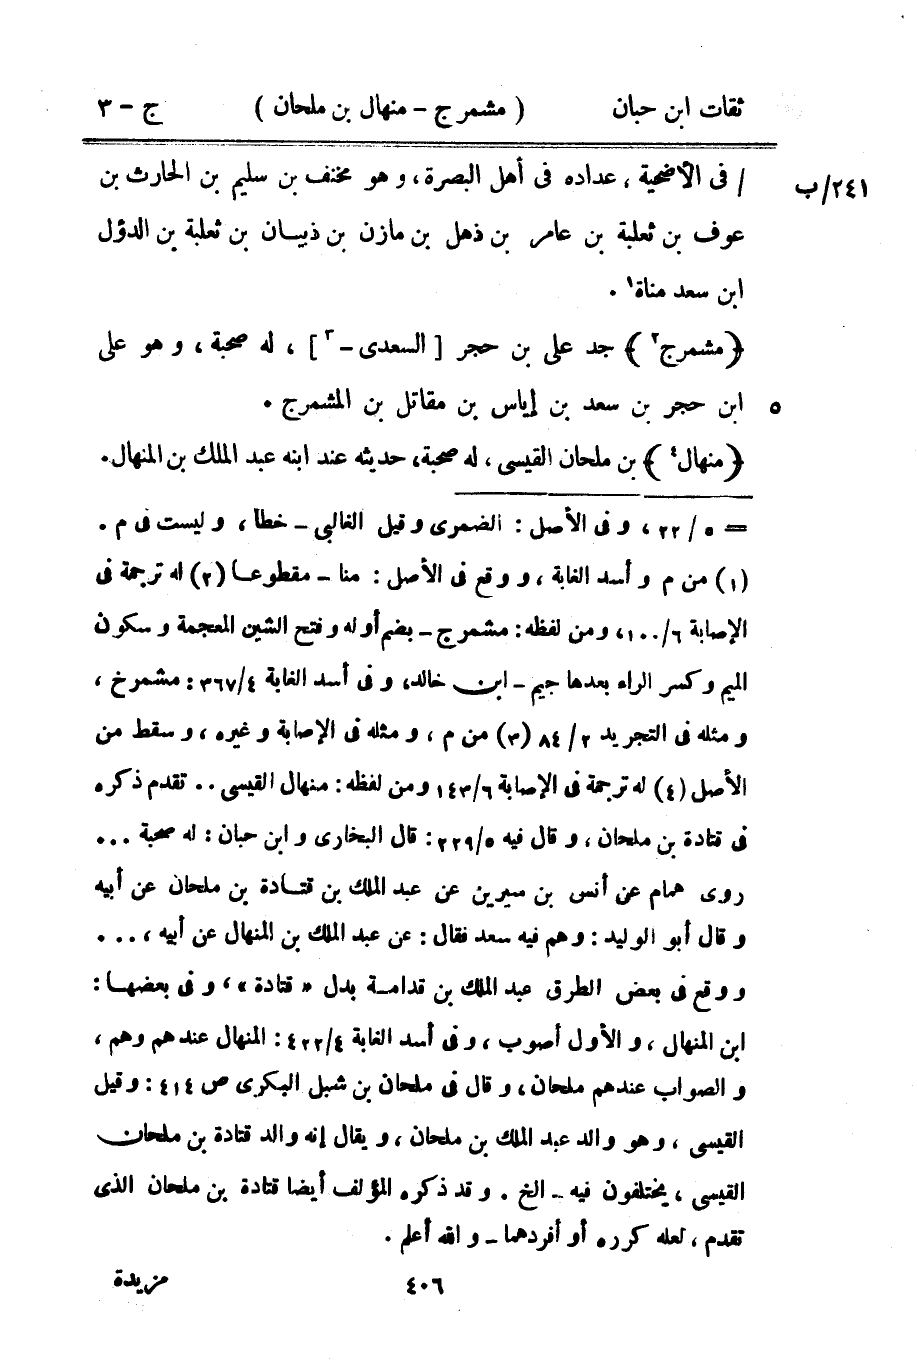 ثقات ابن حبان ( مشمرج – منهال بن ملحان ) ج – ٣
٢٤١/ب / فى الأضحية ، عداده فى أهل البصرة ، و هو مخنف بن سليم بن الحارث بن
عوف بن ثعلبة بن عامر بن ذهل بن مازن بن ذبيان بن ثعلبة بن الدؤل
ابن سعد مناة١ .
﴿مشمرج٢﴾ جد على بن حجر [ السعدى – ٣ ] ، له صحبة ، و هو على
٥ ابن حجر بن سعد بن إياس بن مقاتل بن المشمرج .
﴿منهال٤﴾ بن ملحان القيسى ، له صحبة، حديثه عند ابنه عبد الملك بن المنهال.
= ٢٢/٥ ، و فى الأصل : الضمرى و قيل الغالبى – خطأ ، و ليست فى م .
(١) من م و أسد الغابة ، و وقع فى الأصل : منا – مقطوعا (٢) له ترجمة فى
الإصابة ١٠٠/٦، و من لفظه: مشمرج – بضم أوله و فتح الشين المعجمة و سكون
الميم و كسر الراء بعدها جيم – ابن خالد، و فى أسد الغابة ٣٦٧/٤ : مشمرخ ،
و مثله فى التجريد ٨٤/٢ (٣) من م ، و مثله فى الإصابة و غيره ، و سقط من
الأصل (٤) له ترجمة فى الإصابة ١٤٣/٦ و من لفظه : منهال القيسى .. تقدم ذكره
فى قتادة بن ملحان ، و قال فيه ٢٢٩/٥ : قال البخارى و ابن حبان : له صحبة ...
روى همام عن أنس بن سيرين عن عبد الملك بن قتادة بن ملحان عن أبيه
و قال أبو الوليد : وهم فيه سعد فقال : عن عبد الملك بن المنهال عن أبيه ، ...
و وقع فى بعض الطرق عبد الملك بن قدامة بدل « قتادة » ، و فى بعضها :
ابن المنهال ، و الأول أصوب ، و فى أسد الغابة ٤٢٢/٤ : المنهال عندهم وهم ،
و الصواب عندهم ملحان ، و قال فى ملحان بن شبل البكرى ص ٤١٤ : و قيل
القيسى ، و هو والد عبد الملك بن ملحان ، و يقال إنه والد قتادة بن ملحان
القيسى ، يختلفون فيه – الخ . و قد ذكره المؤلف أيضا قتادة بن ملحان الذى
تقدم ، لعله كرره أو أفردهما – و الله أعلم .
٤٠٦ مزيدة